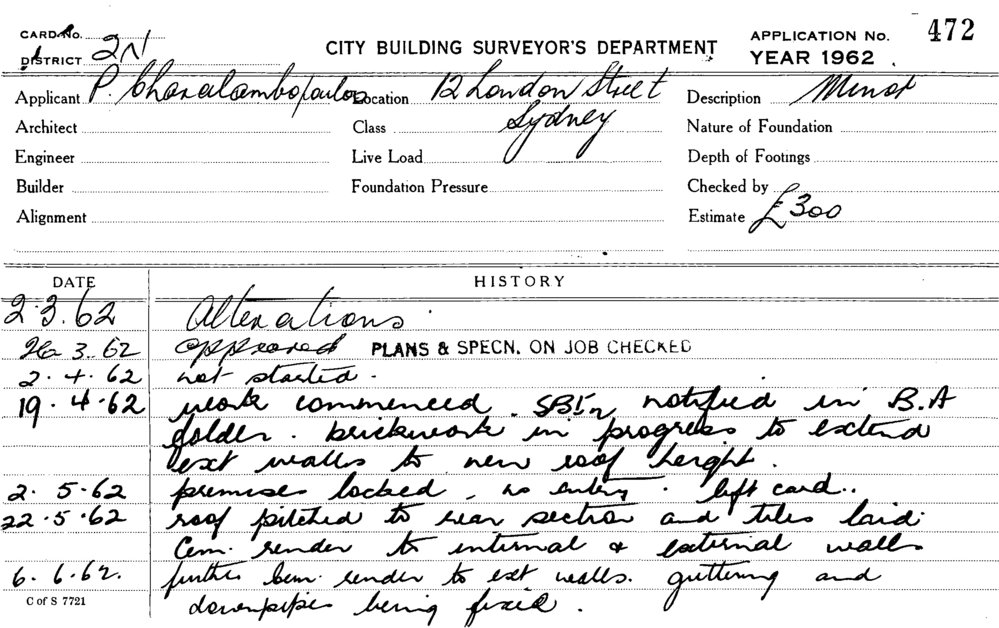 CARD No.
472
DISTRICT 2N
CITY BUILDING SURVEYOR'S DEPARTMENT
APPLICATION No.
YEAR 1962
Applicant P. Charalambopoulos Location 12 London Street Description Minor
Architect Class Sydney Nature of Foundation
Engineer Live Load Depth of Footings
Builder Foundation Pressure Checked by
Alignment Estimate £300
DATE HISTORY
2.3.62 Alterations
26 3. 62 approved PLANS & SPECN. ON JOB CHECKED
2.4.62 not started.
19.4.62 work commenced. notified in B.A
folder. brickwork in progress to extend
ext walls to new roof height.
2.5.62 premises locked, no entry. left card..
22.5.62 roof pitched to rear section and tiles laid.
Cem. render to internal & external walls
6.6.62. further cem. render to ext walls. guttering and
C of S 7721 downpipes being fixed.